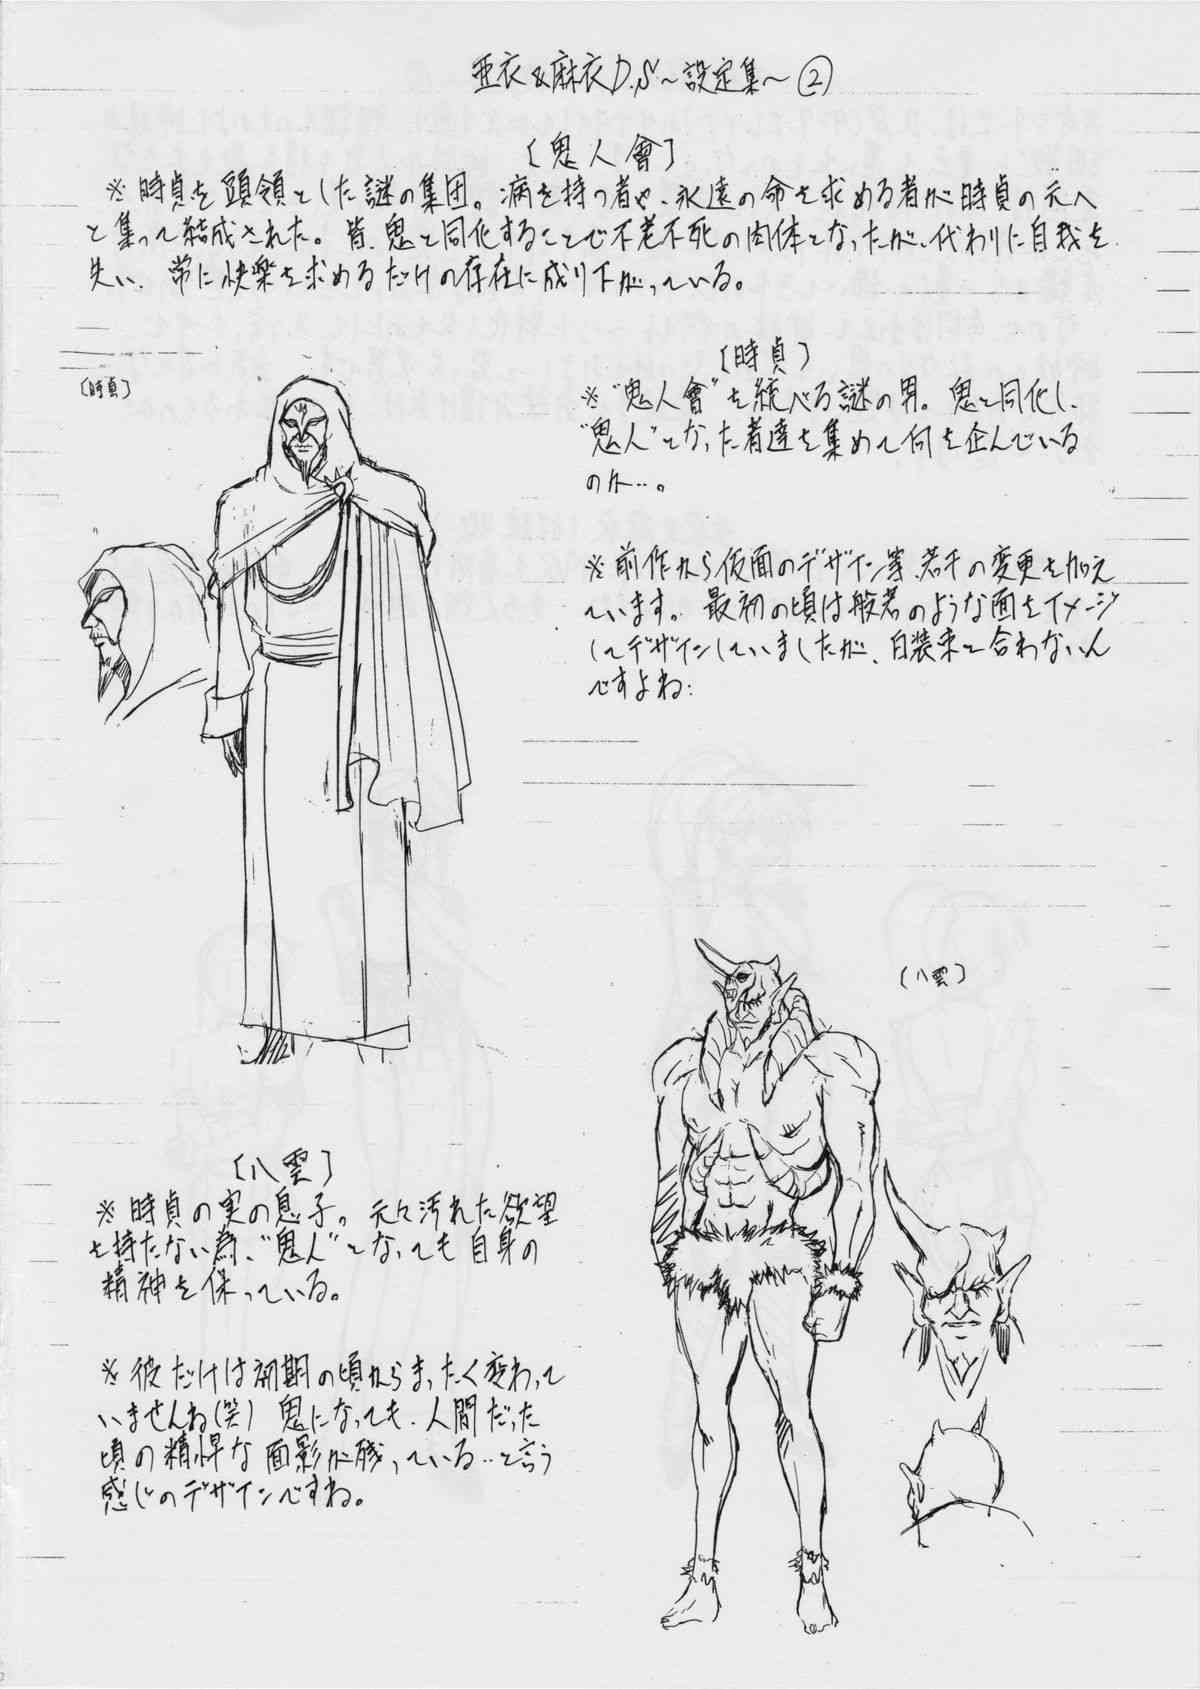 亜衣&麻衣D.S～設定集～②
〔鬼人會〕
※時貞を頭領とした謎の集団。病を持つ者や、永遠の命を求める者が時貞の元へ
と集って結成された。皆、鬼と同化することで不老不死の肉体となったが、代わりに自我を
失い、常に快楽を求めるだけの存在に成り下がっている。
〔時貞〕
〔時貞〕
※“鬼人會”を統べる謎の男。鬼と同化し、
“鬼人”となった者達を集めて何を企んでいる
のか…。
※前作から仮面のデザイン等、若干の変更を加え
ています。最初の頃は般若のような面をイメージ
してデザインしていましたが、白装束と合わないん
ですよね:
〔八雲〕
〔八雲〕
※時貞の実の息子。元々汚れた欲望
を持たない為、“鬼人”となっても自身の
精神を保っている。
※彼だけは初期の頃からまったく変わって
いませんね(笑) 鬼になっても、人間だった
頃の精悍な面影が残っている‥と言う
感じのデザインですね。